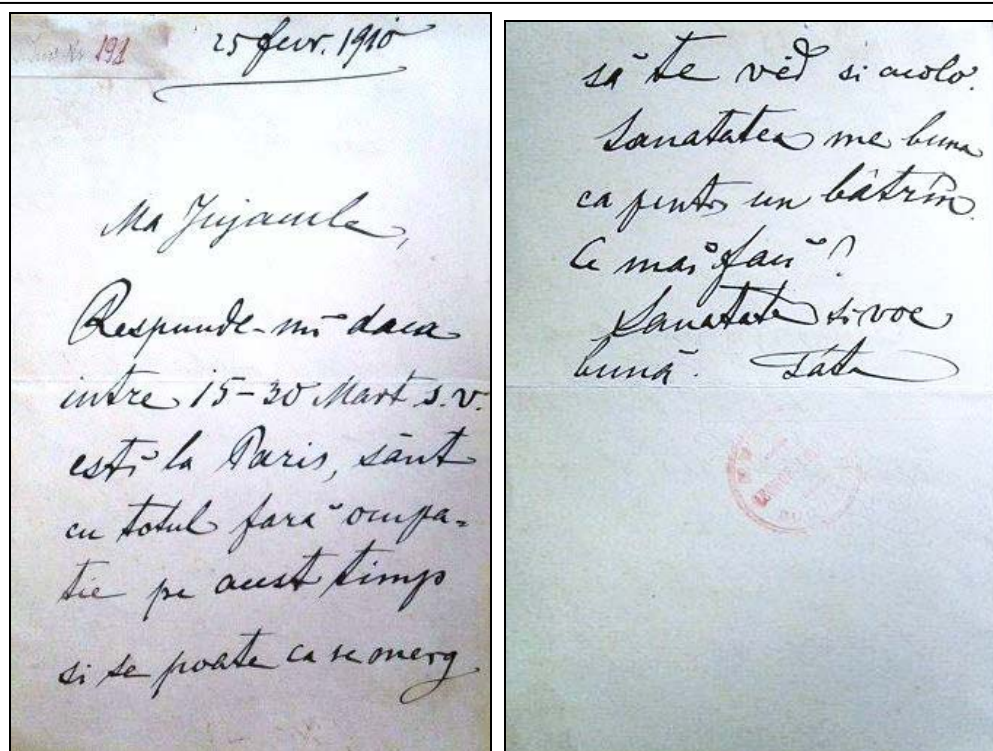 191
25 fevr. 1910
Ma
Respunde-mĭ daca
intre 15-30 Mart s.v.
estĭ la Paris, sânt
cu totul fara ocupa-
tie pe acest timp
si se poate ca se merg
să te vĕd si acolo.
Sanatatea me buna
ca pentr un bâtrîn.
Ce maĭ facĭ?
Sanatate si voe
bună. Tata